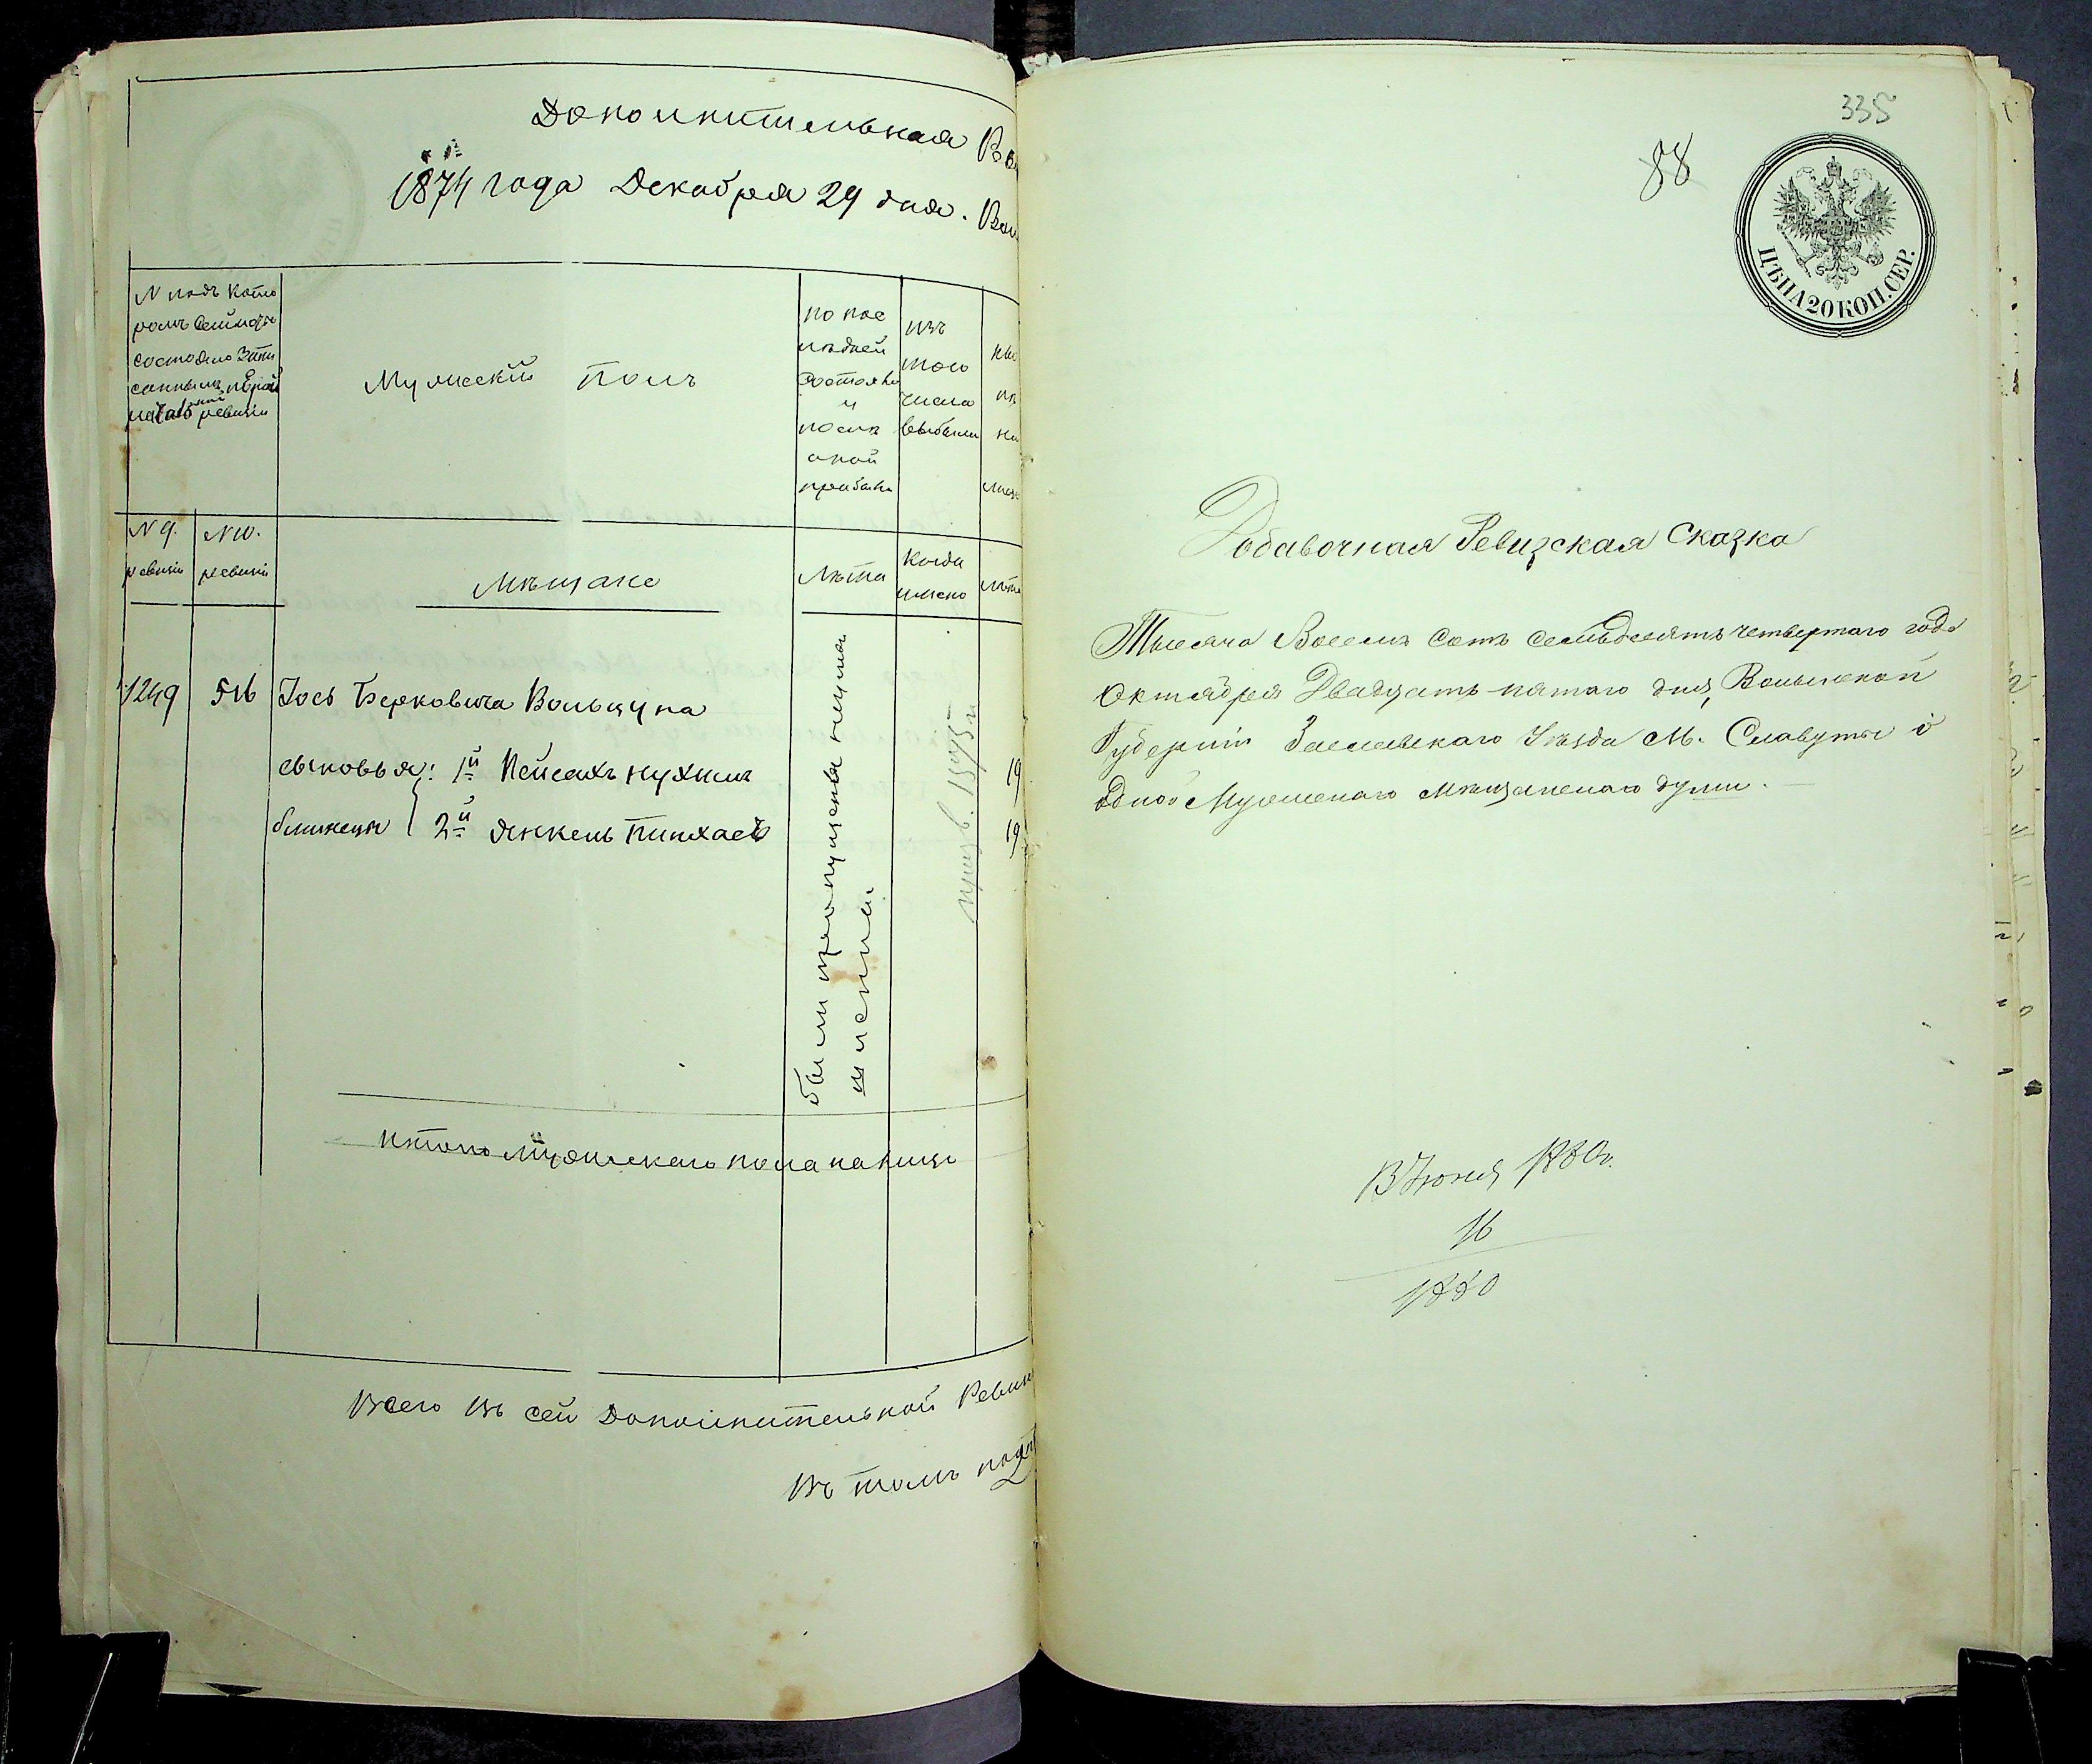 Дополнительная
1874 года Декабря 29 дня.
N подъ кото
ромъ Семейство
состояло
ревизіи
Мужескій полъ
по пос
лѣдней
и
послѣ
оной
прибыло
изъ
того
числа
выбыло
N 9. ревизіи
N 10. ревизіи
Мѣщане
Лѣта
Когда
именно
1249 516 Іось Берковича Вольцуна
сыновья: 1й Пейсахъ Нухимъ 19
близнецы 2й Янкель Пинхасъ 19
были пропущены
1875
Итого Мужескаго пола налицо
Всего въ сей дополнительной
Въ томъ
335
88
ЦѢНА 20 КОП. СЕР.
Добавочная Ревизская Сказка
Тысяча Восемь Сотъ Семьдесятъ четвертаго года
Октября Двадцать пятаго дня, Волынской
Губерніи Заславскаго Уѣзда М. Славуты о
одной Мужескаго мѣщанскаго души.
Іюня 1880г.
16
1880